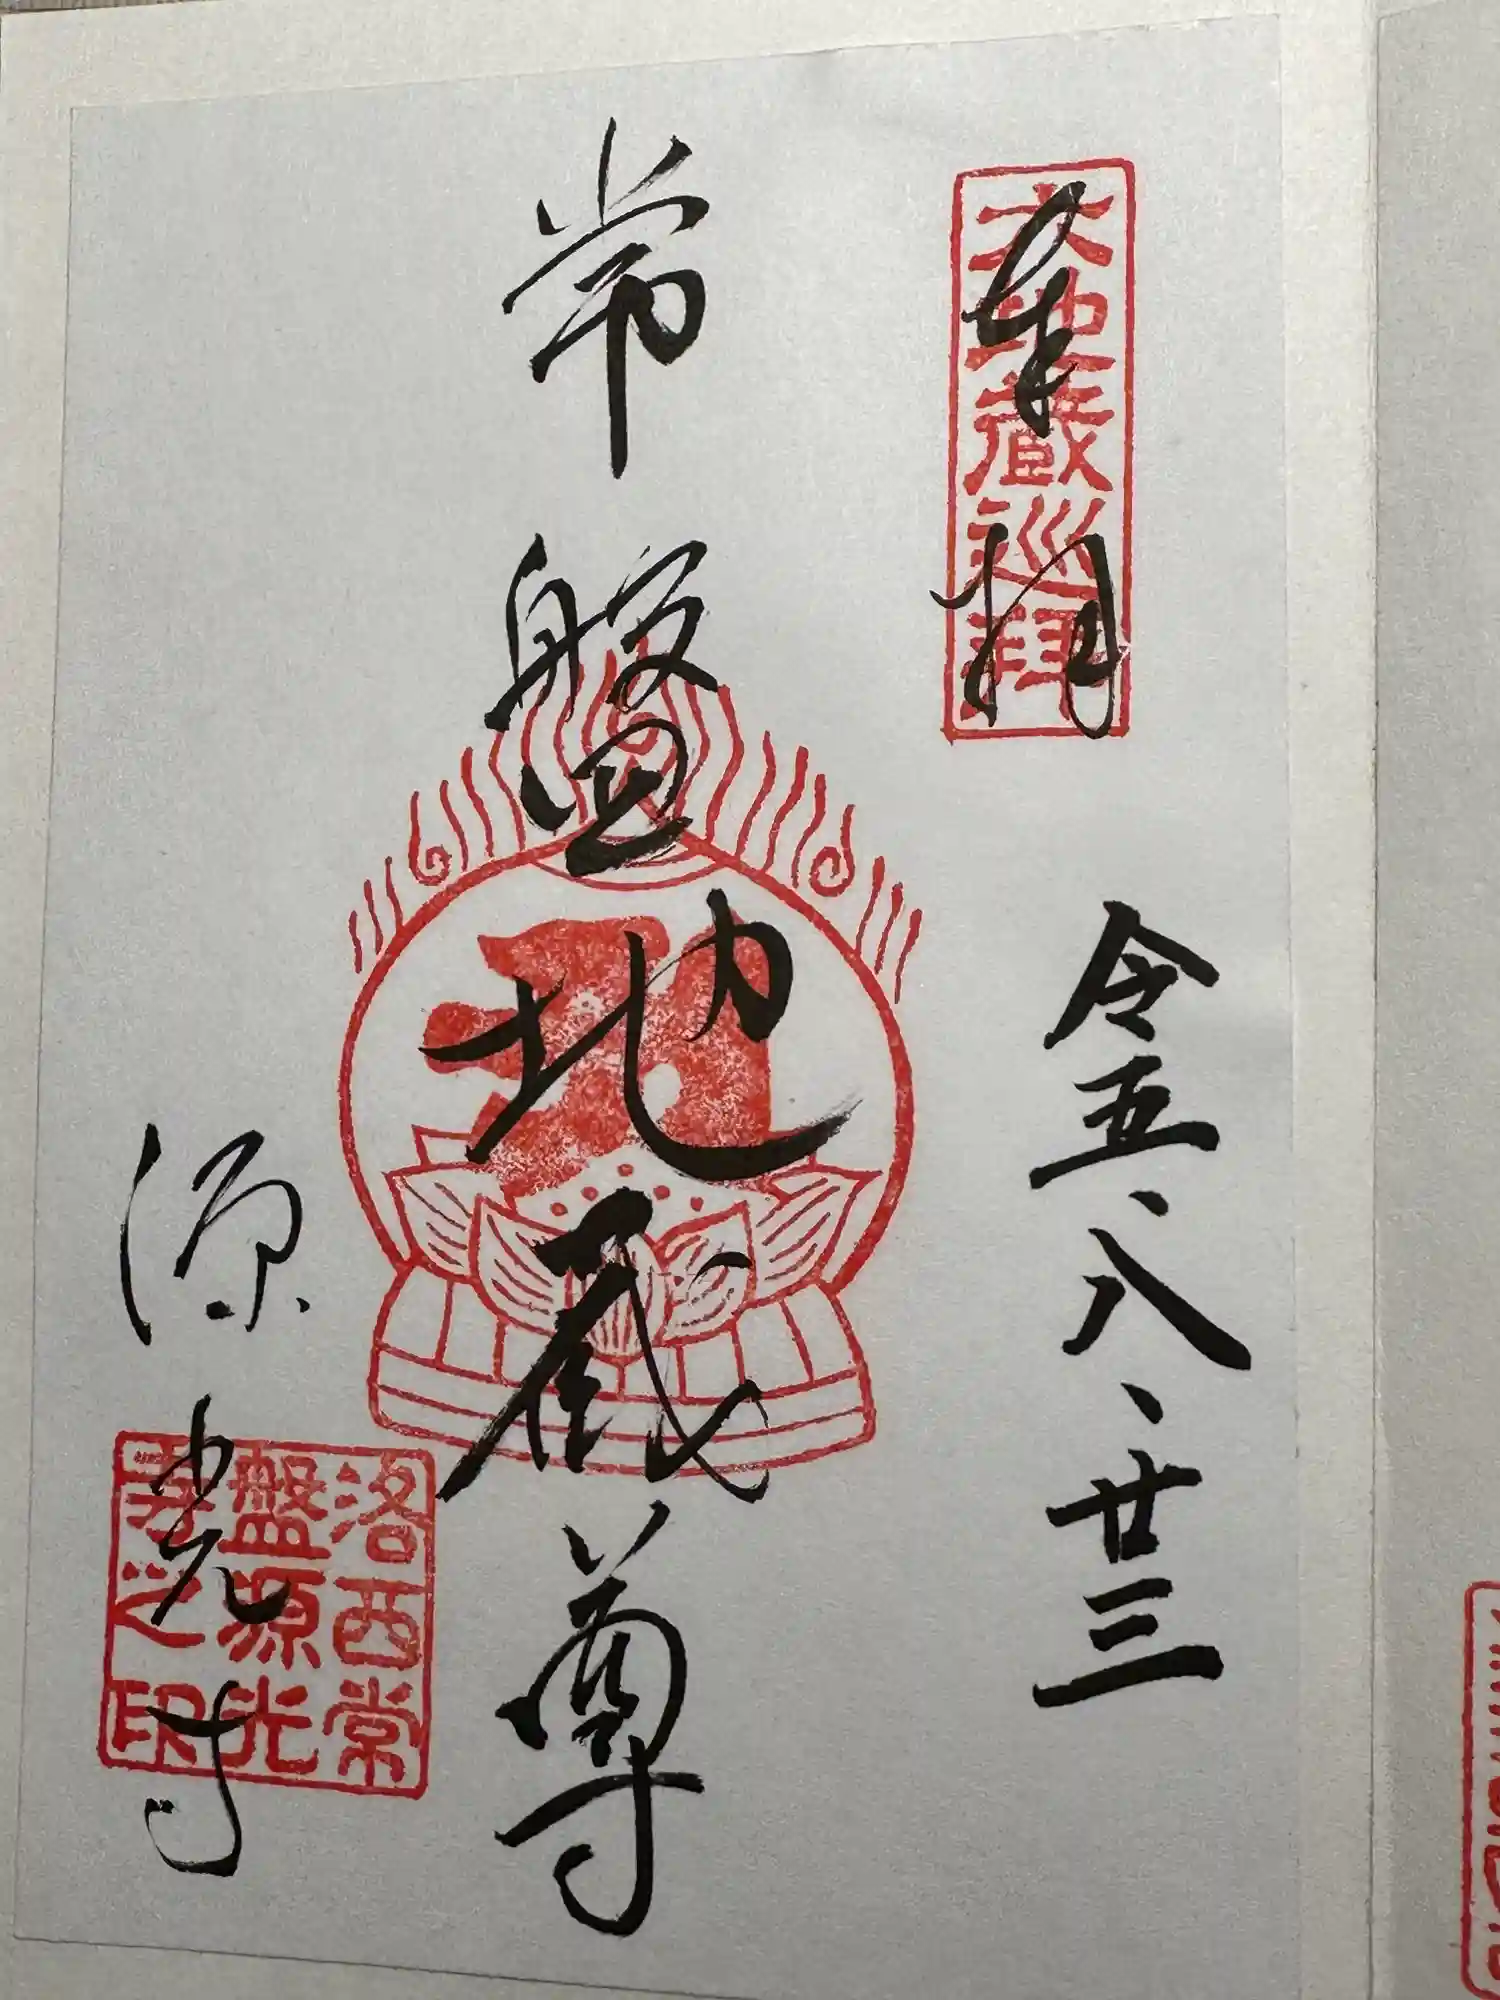 六地蔵巡拝
奉拝
令五、八、廿三
常盤地蔵尊
源光寺
洛西常
盤源光
寺之印